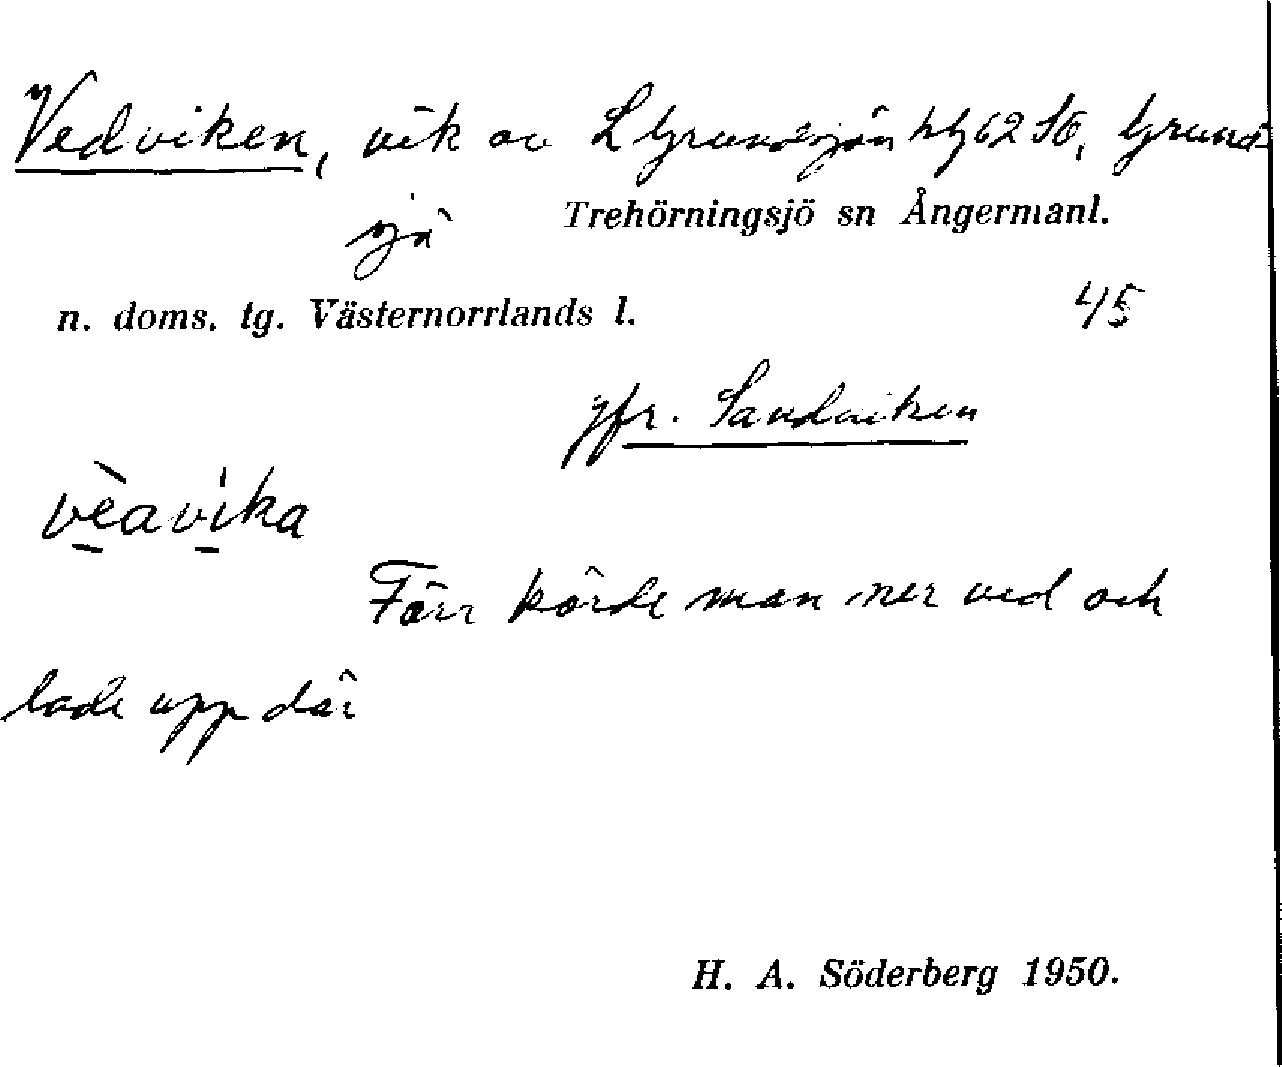 Vedviken, vik av L Grundsjön hy62 SO, Grund-
sjö Trehörningsjö sn Ångermanl.
n. doms. tg. Västernorrlands l. 45
jfr. Sandviken
vèavika
Förr körde man ner ved och
lade upp där
H. A. Söderberg 1950.